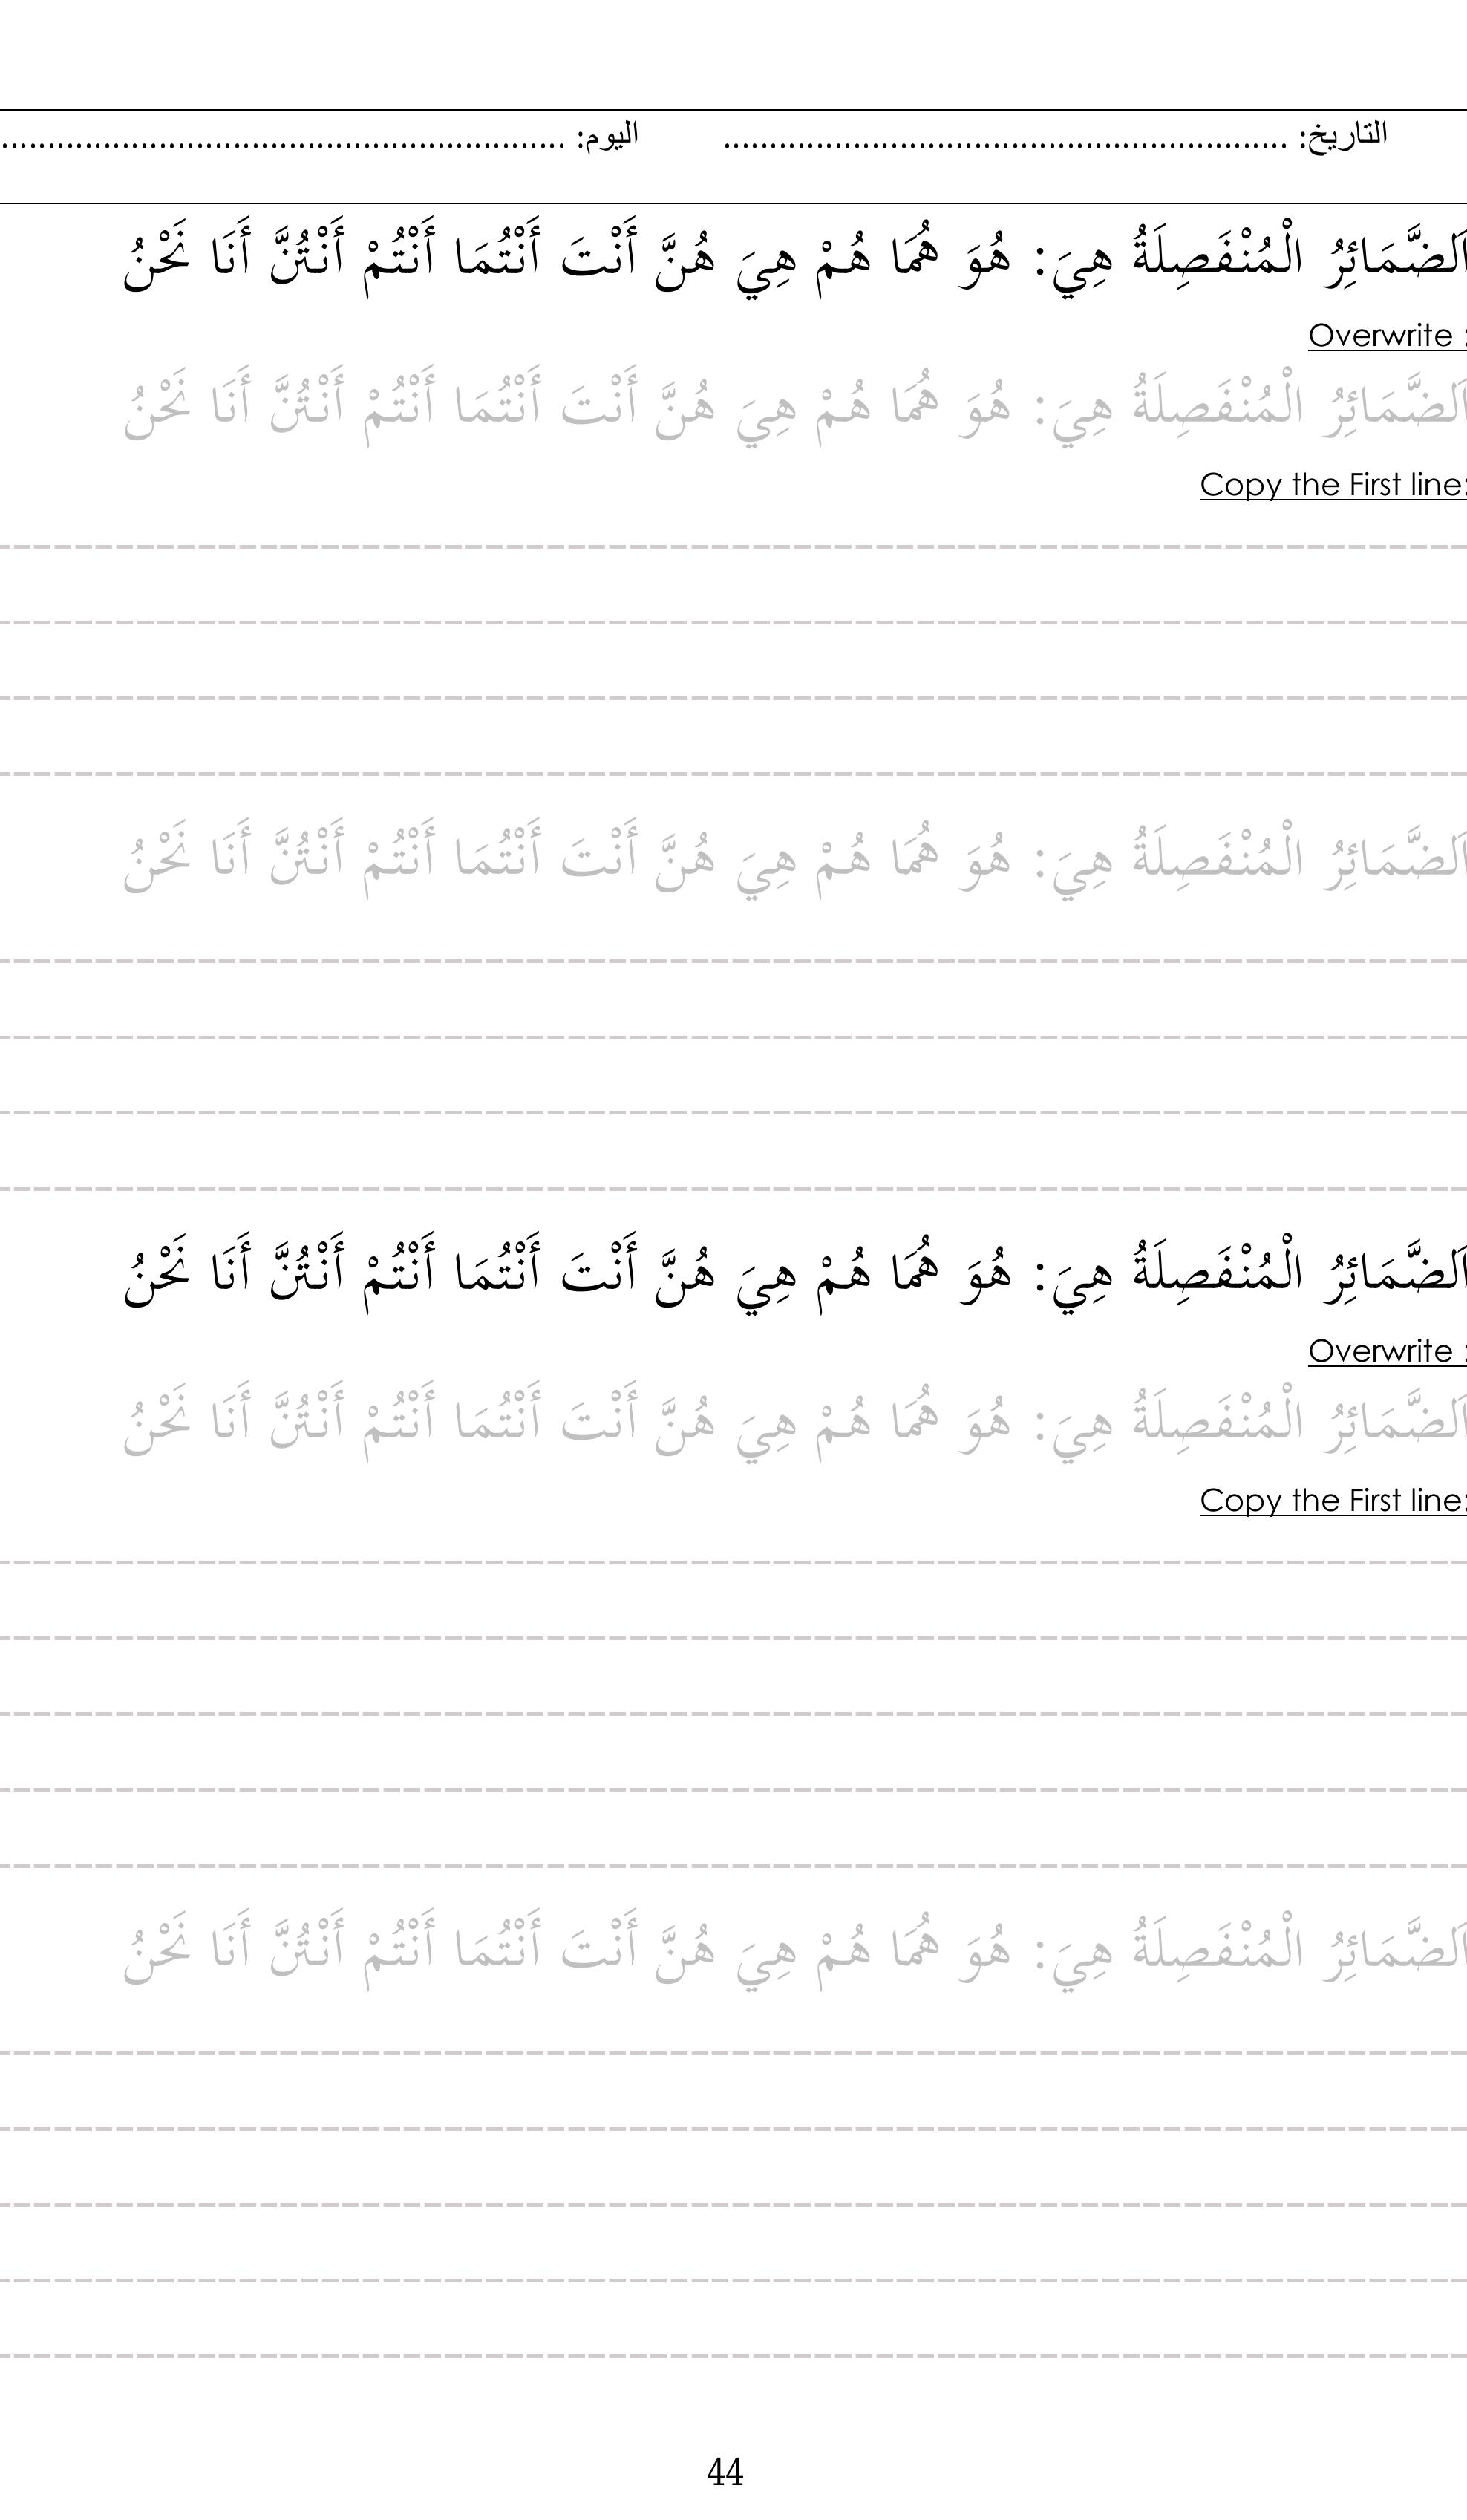 التاريخ: ............................................................ اليوم: ............................................................
اَلضَّمَائِرُ الْمُنْفَصِلَةُ هِيَ: هُوَ هُمَا هُمْ هِيَ هُنَّ أَنْتَ أَنْتُمَا أَنْتُمْ أَنْتُنَّ أَنَا نَحْنُ
Overwrite :
اَلضَّمَائِرُ الْمُنْفَصِلَةُ هِيَ: هُوَ هُمَا هُمْ هِيَ هُنَّ أَنْتَ أَنْتُمَا أَنْتُمْ أَنْتُنَّ أَنَا نَحْنُ
Copy the First line:
اَلضَّمَائِرُ الْمُنْفَصِلَةُ هِيَ: هُوَ هُمَا هُمْ هِيَ هُنَّ أَنْتَ أَنْتُمَا أَنْتُمْ أَنْتُنَّ أَنَا نَحْنُ
اَلضَّمَائِرُ الْمُنْفَصِلَةُ هِيَ: هُوَ هُمَا هُمْ هِيَ هُنَّ أَنْتَ أَنْتُمَا أَنْتُمْ أَنْتُنَّ أَنَا نَحْنُ
Overwrite :
اَلضَّمَائِرُ الْمُنْفَصِلَةُ هِيَ: هُوَ هُمَا هُمْ هِيَ هُنَّ أَنْتَ أَنْتُمَا أَنْتُمْ أَنْتُنَّ أَنَا نَحْنُ
Copy the First line:
اَلضَّمَائِرُ الْمُنْفَصِلَةُ هِيَ: هُوَ هُمَا هُمْ هِيَ هُنَّ أَنْتَ أَنْتُمَا أَنْتُمْ أَنْتُنَّ أَنَا نَحْنُ
44